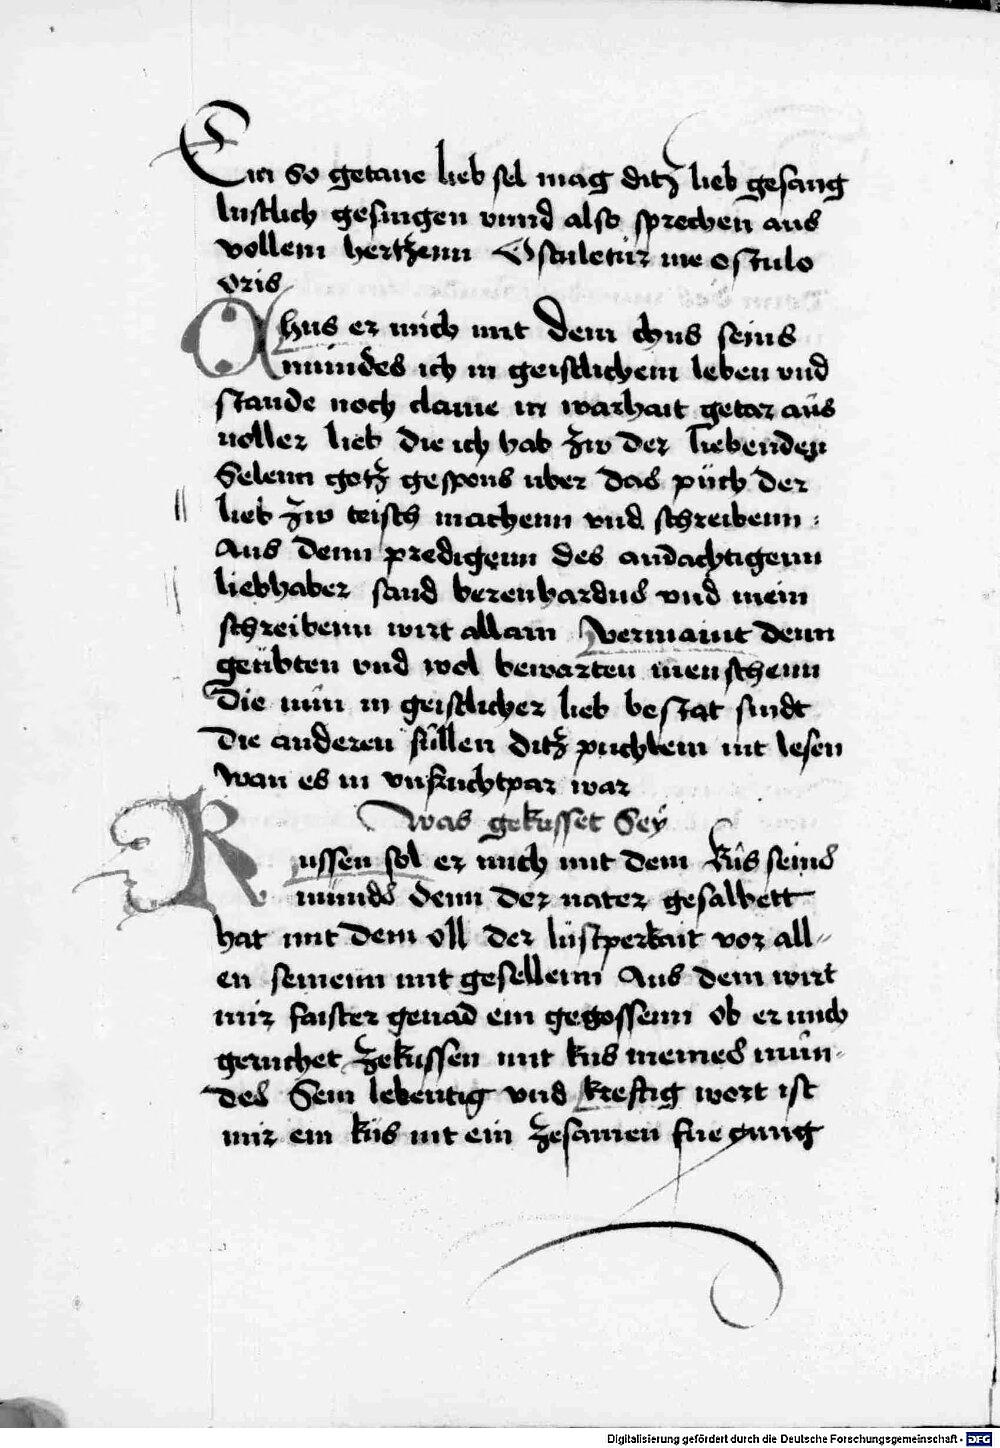 Ein so getane lieb sel mag ditz lieb gesang
lustlich gesingen vnnd also sprechen aus
vollem hertzenn Osculetur me osculo
oris
Chus er mich mit dem chus seins
mundes ich in geistlichem leben vnd
stande noch claine in warhait getar aus
voller lieb die ich hab zw der liebenden
Selenn gotz gespons vber das püch der
lieb zw teisch machenn vnd schreibenn
Aus denn predigenn des andachtigenn
liebhaber sand berenhardus vnd mein
schreibenn wirt allain vermaint denn
geübten vnd wol bewarten menschenn
Die nün in geistlicher lieb bestat sindt
Die anderen süllen ditz puchlein nit lesen
wan es in vnfruchtpar war
Was gekusset Sey
Kussen sol er mich mit dem Kus seins
munds denn der vater gesalbett
hat mit dem oll der lüstperkait vor all-
en seinenn mit gesellenn Aus dem wirt
mir faister genad ein gegossenn ob er mich
geruchet zekussen mit kus meines mün-
des Sein lebentig vnd kreftig wort ist
mir ein küs nit ein zesamen fuegung
Digitalisierung gefördert durch die Deutsche Forschungsgemeinschaft - DFG